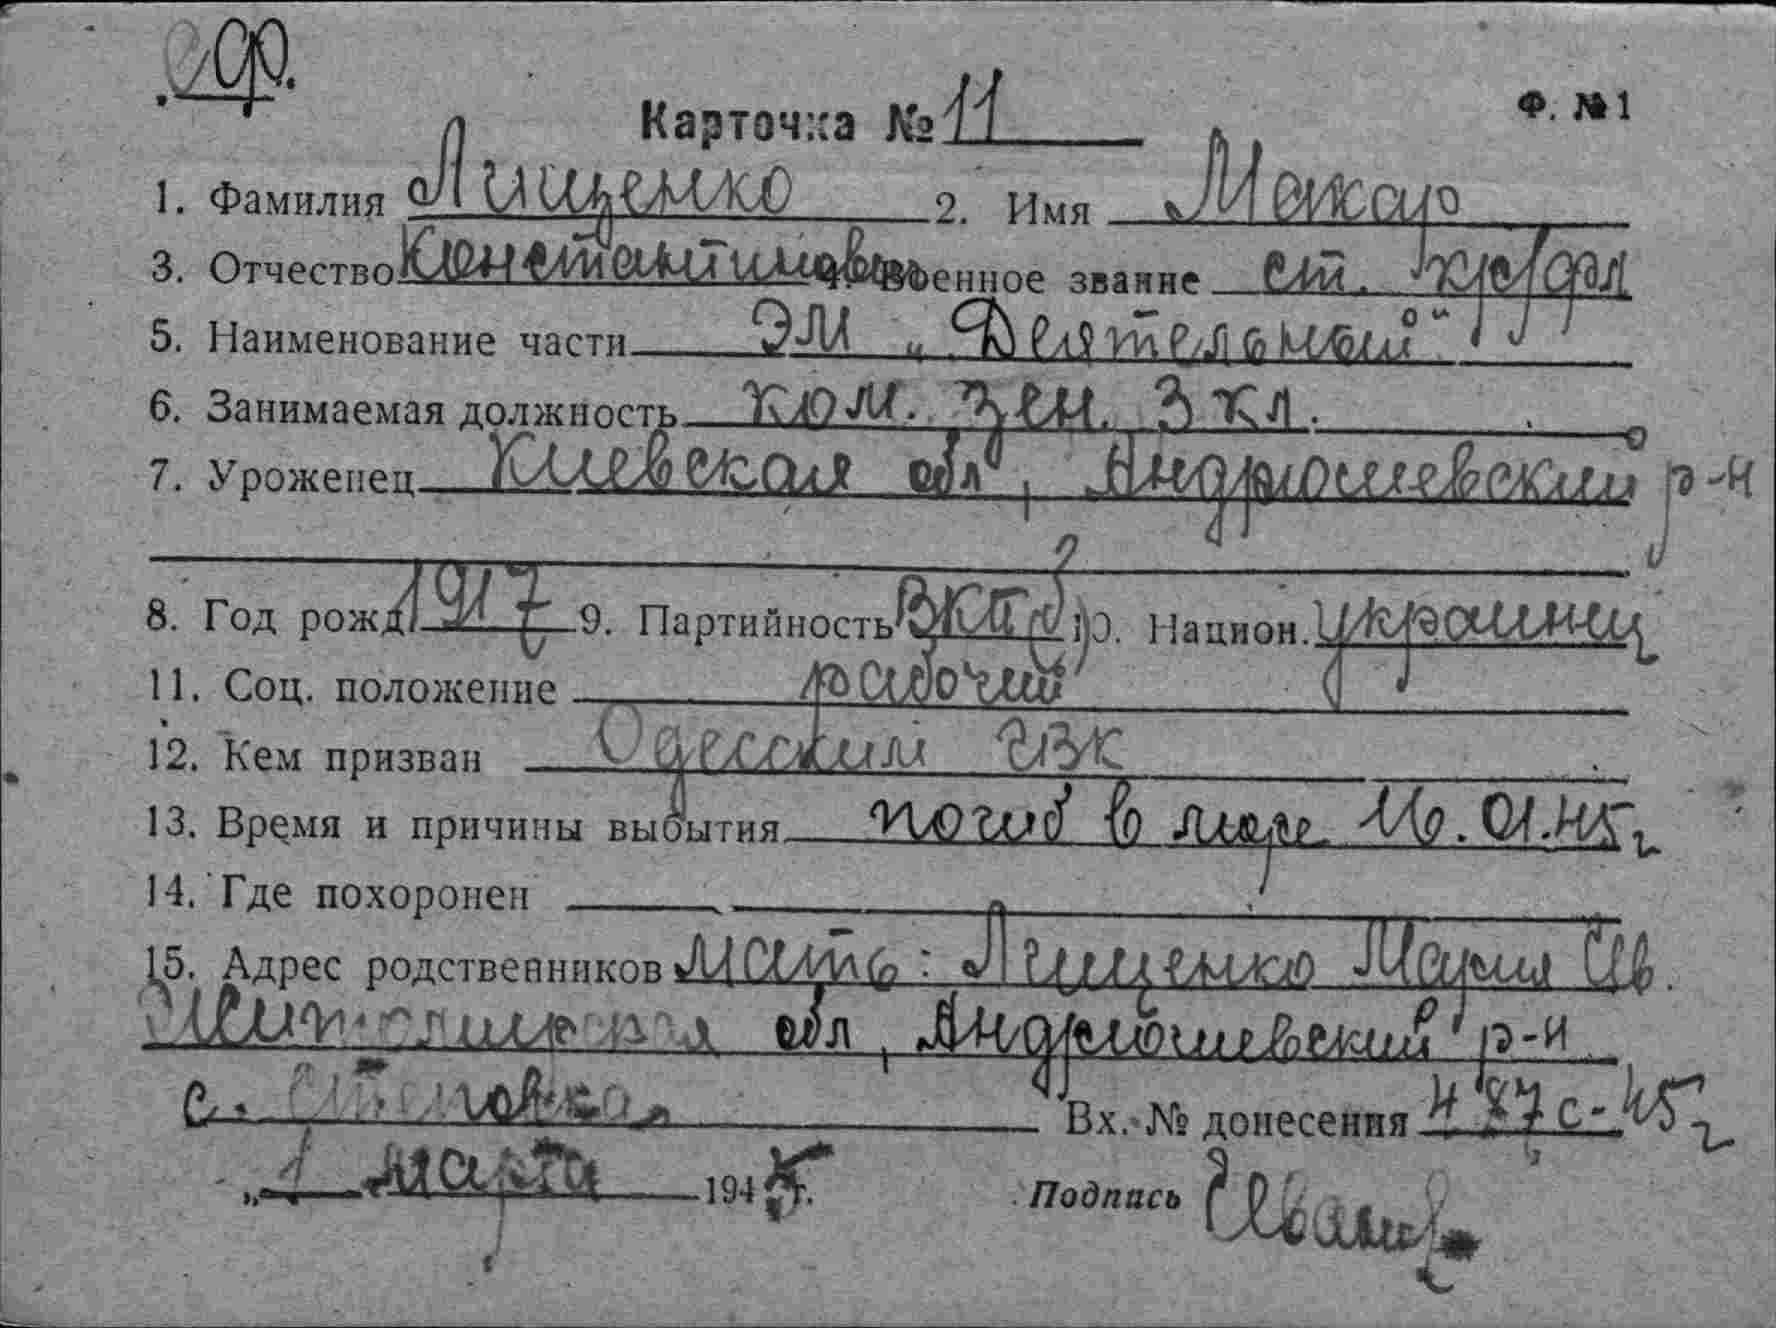 Ф. №1
Карточка № 11
1. Фамилия Лищенко 2. Имя Макар
3. Отчество Константинович 4. Военное звание ст. кр/фл
5. Наименование части ЭМ „Деятельный“
6. Занимаемая должность ком. зен. 3 кл.
7. Уроженец Киевская обл, Андрюшевский р-н
8. Год рожд. 1917 9. Партийность ВКПб 10. Национ. украинец
11. Соц. положение рабочий
12. Кем призван Одесским ГВК
13. Время и причины выбытия погиб в море 16.01.45 г
14. Где похоронен
15. Адрес родственников мать: Лищенко Мария Ив.
Житомирская обл, Андрюшевский р-н
с. Вх. № донесения 487с-45 г
„1 марта 1945 г.
Подпись